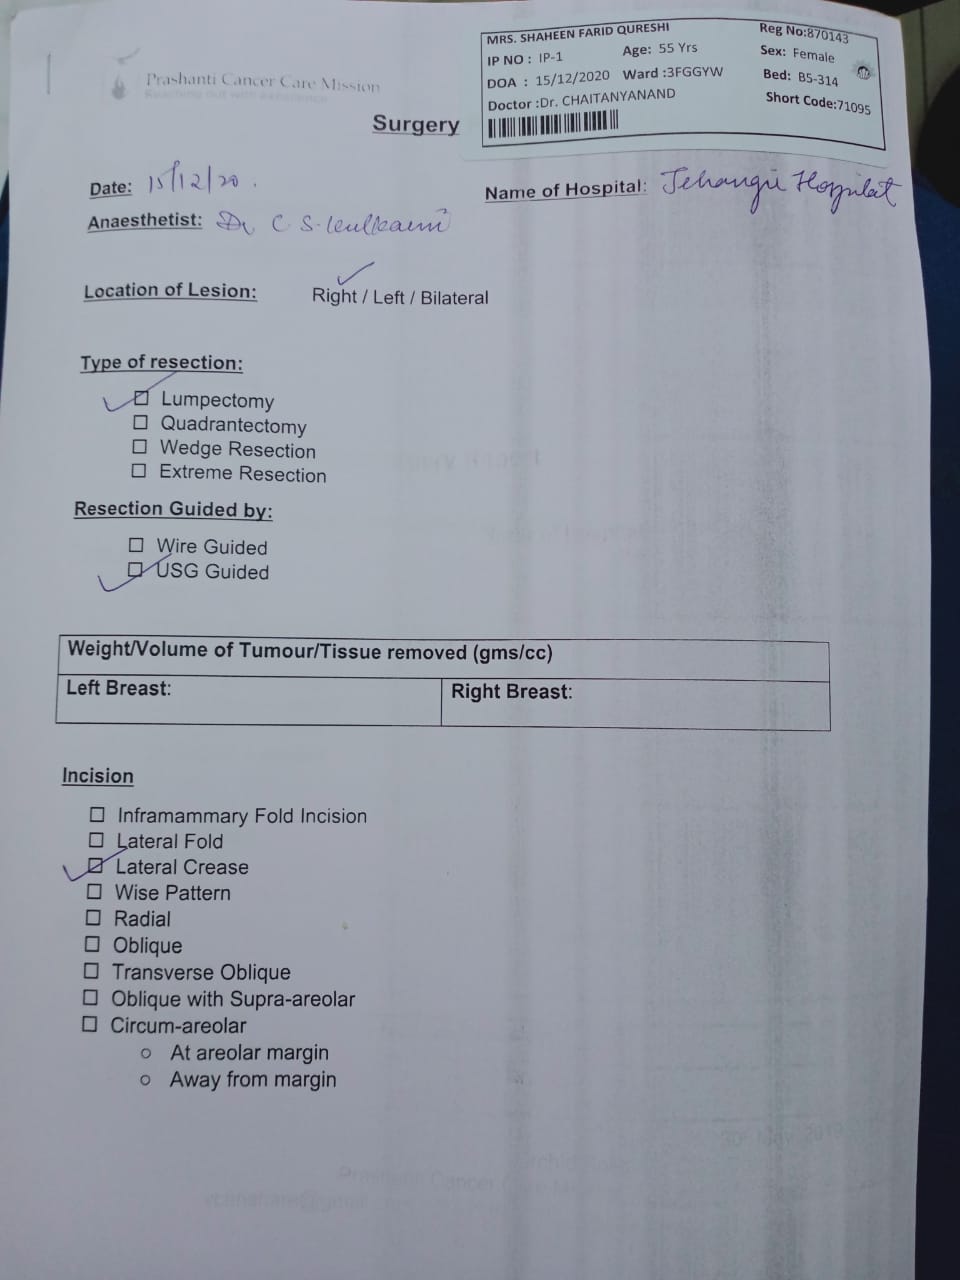 Prashanti Cancer Care Mission
Reaching out with experience
MRS. SHAHEEN FARID QURESHI
Reg No:870143
IP NO : IP-1 Age: 55 Yrs Sex: Female
DOA : 15/12/2020 Ward :3FGGYW Bed: B5-314
Doctor :Dr. CHAITANYANAND Short Code:71095
Surgery
Date: 15/12/20.
Name of Hospital: Jehangir Hospital
Anaesthetist: Dr C S. Kulkarni
Location of Lesion: Right / Left / Bilateral
Type of resection:
Lumpectomy
Quadrantectomy
Wedge Resection
Extreme Resection
Resection Guided by:
Wire Guided
USG Guided
Weight/Volume of Tumour/Tissue removed (gms/cc)
Left Breast: Right Breast:
Incision
Inframammary Fold Incision
Lateral Fold
Lateral Crease
Wise Pattern
Radial
Oblique
Transverse Oblique
Oblique with Supra-areolar
Circum-areolar
At areolar margin
Away from margin